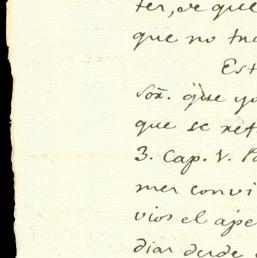 ter, de que
que no tra
Est
Sor. que yo
que se ref
3. Cap. V. Pa
mer convi
vios el ape
diar desde